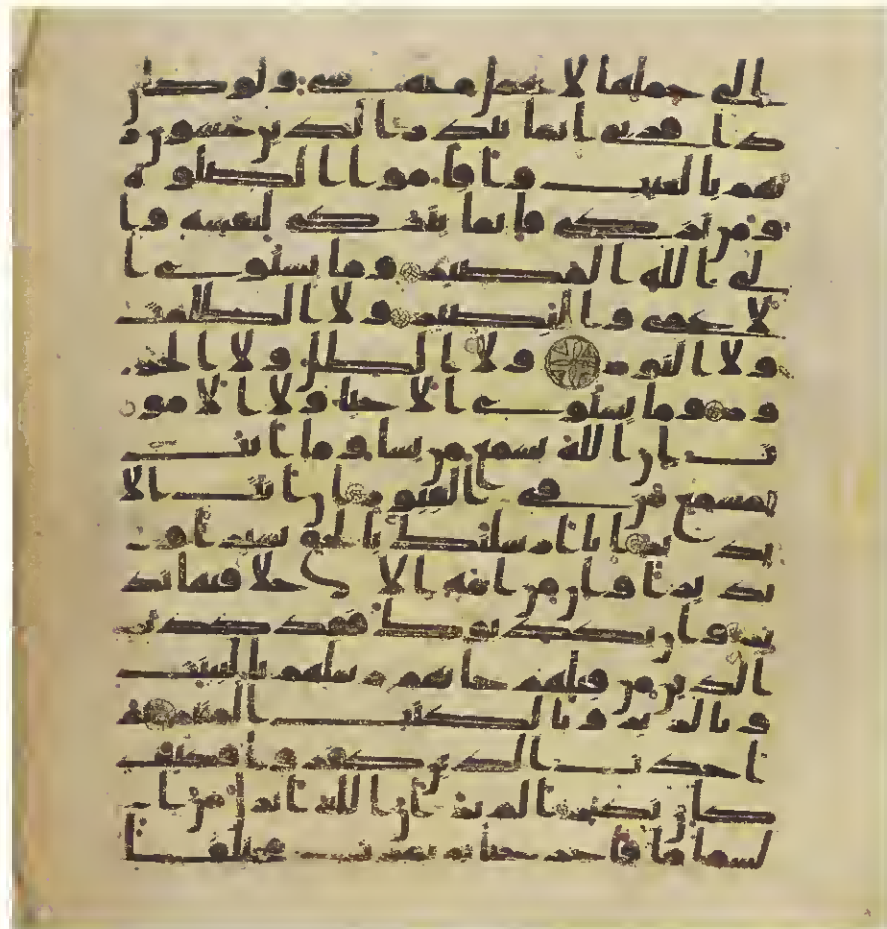 الى حملها لا يحمل منه شى ولو كان
ذا قربى انما تنذر الذين يخشون ر
بهم بالغيب واقاموا الصلوة
ومن تزكى فانما يتزكى لنفسه وا
لى الله المصير وما يستوى ا
لاعمى والبصير ولا الظلمت
ولا النور ولا الظل ولا الحر
ور وما يستوى الاحيا ولا الامو
ت ان الله يسمع من يشا وما انت
بمسمع من فى القبور ان انت الا
نذير انا ارسلنك بالحق بشيرا ون
ذيرا وان من امه الا خلا فيها نذ
ير وان يكذبوك فقد كذب
الذين من قبلهم جاتهم رسلهم بالبينت
وبالزبر وبالكتب المنير ثم
اخذت الذين كفروا فكيف
كان نكير الم تر ان الله انزل من ا
لسما ما فاخرجنا به ثمرت مختلفا